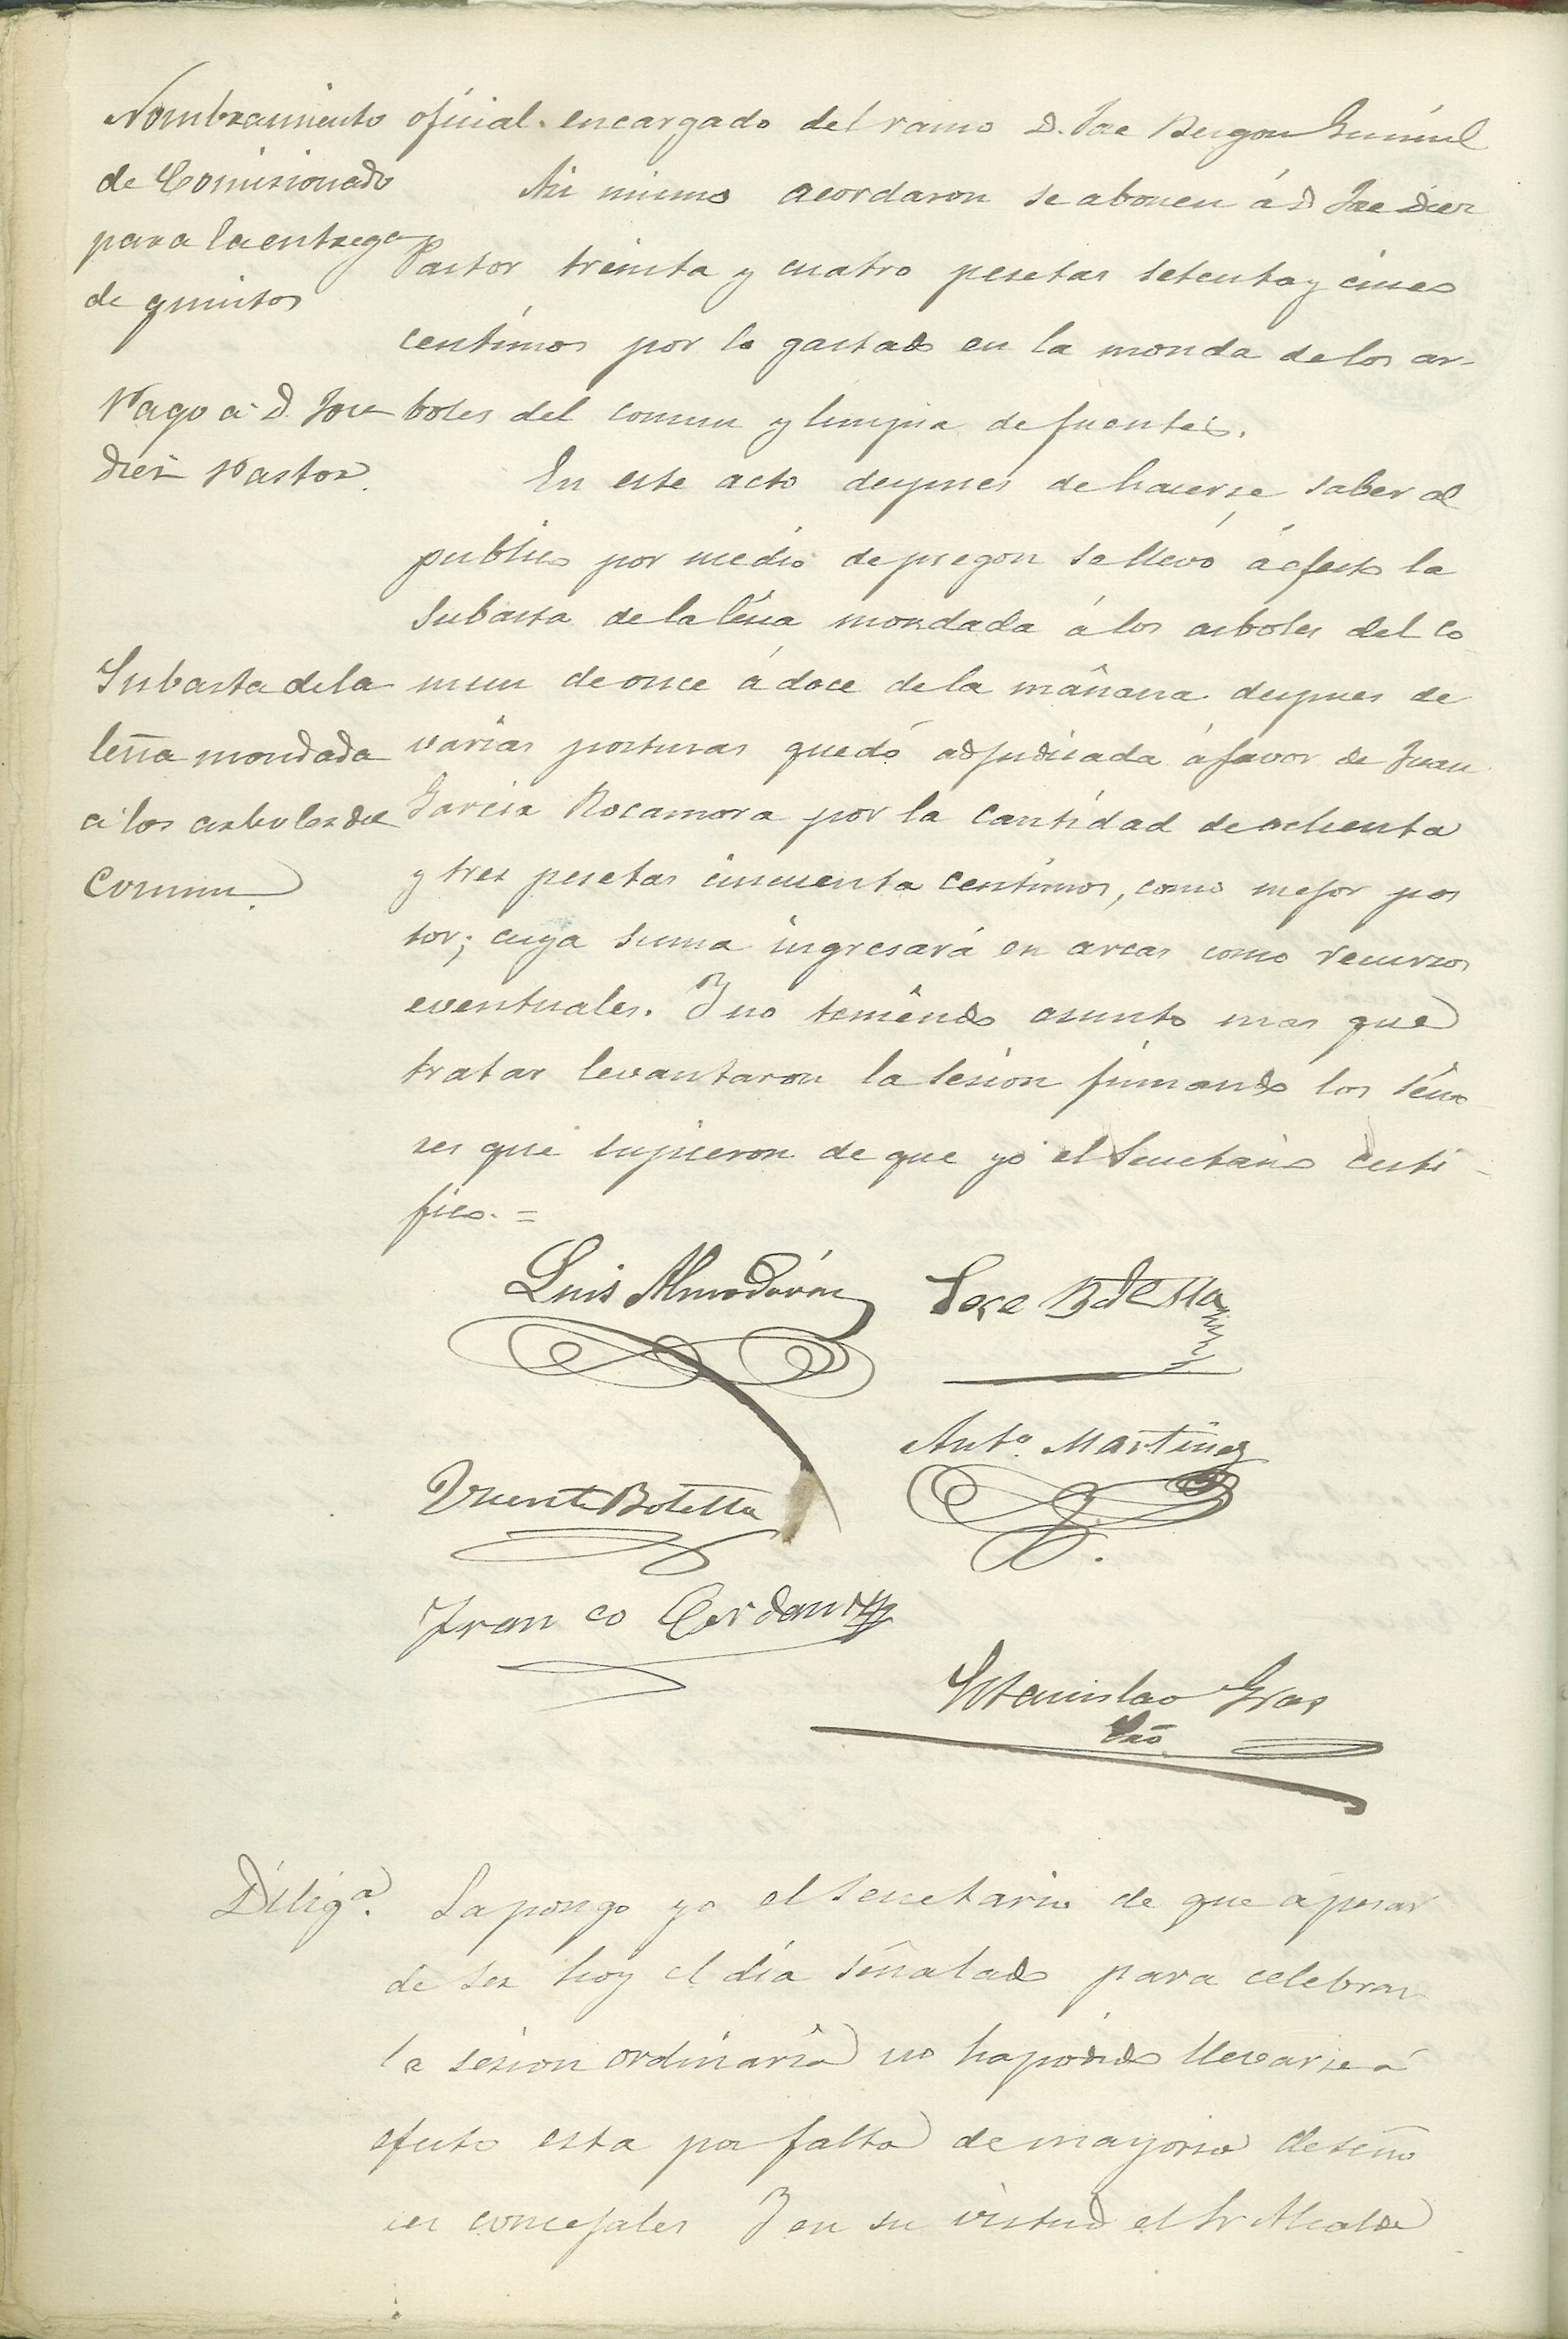 Nombramiento
de Comisionado
para la entrega
de quintos
oficial encargado del ramo D. Jose Bergon
Asi mismo acordaron se abonen á D Jose Diez
Pastor treinta y cuatro pesetas setenta y cinco
centimos por lo gastado en la monda de los ar-
Pago a D. Jose
Diez Pastor.
boles del comun y limpia de fuentes.
En este acto despues de hacerse saber al
publico por medio de pregon se llevó á efecto la
subasta de la leña mondada á los arboles del co
Subasta de la
leña mondada
a los arboles del
Comun.
mun de once á doce de la mañana despues de
varias posturas quedó adjudicada á favor de Juan
Garcia Rocamora por la cantidad de ochenta
y tres pesetas cincuenta centimos, como mejor pos
tor; cuya suma ingresará en arcas como recursos
eventuales. Y no teniendo asunto mas que
tratar levantaron la sesion firmando los seño
res que supieron de que yo el Secretario certi
fico. =
Luis Almodóvar
Jose Botella
Anto. Martinez
Vicente Botella
Franco Cerdan
Estanislao Gras
Srio.
Diliga. La pongo yo el Secretario de que á pesar
de ser hoy el día señalado para celebrar
la sesion ordinaria no ha podido llevarse á
efecto esta por falta de mayoria de seño
res concejales Y en su virtud el Sr Alcalde